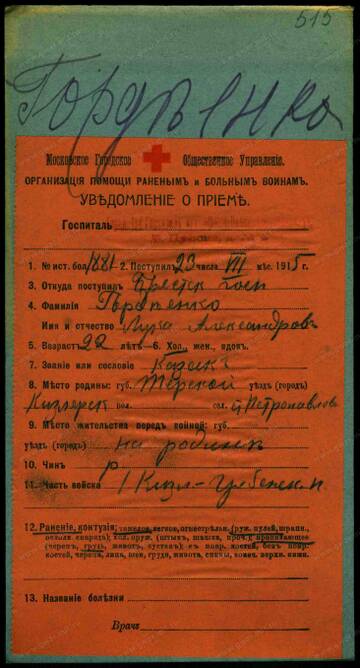 515
Гордѣенко
Московское Городское Общественное Управленіе.
ОРГАНИЗАЦІЯ ПОМОЩИ РАНЕНЫМЪ и БОЛЬНЫМЪ ВОИНАМЪ.
УВѢДОМЛЕНІЕ О ПРІЕМѢ.
Госпиталь
1. № ист. бол. 1881 2. Поступилъ 23 числа VII мѣс. 1915 г.
3. Откуда поступилъ Брестъ
4. Фамилія
Имя и отчество Лука Александровъ
5. Возрастъ 22 лѣтъ 6. Хол., жен., вдов.
7. Званіе или сословіе Казакъ
8. Мѣсто родины: губ. Терской уѣздъ (городъ)
Кизлярск вол. сел. ст. Петропавлов
9. Мѣсто жительства передъ войной: губ.
уѣздъ (городъ) на родинѣ
10. Чинъ р
11. Часть войска 1 Кизл-Гребенск п
12. Раненіе, контузія: тяжелое, легкое, огнестрѣльн. (руж. пулей, шрапн.,
оскол. снаряда); хол. оруж. (штыкъ, шашка, проч.); проникающее
(черепъ, грудь, животъ, суставъ); съ повр. костей, безъ повр.
костей, черепа, лица, шеи, груди, живота, спины, конеч. верхн. нижн.
13. Названіе болѣзни
Врачъ